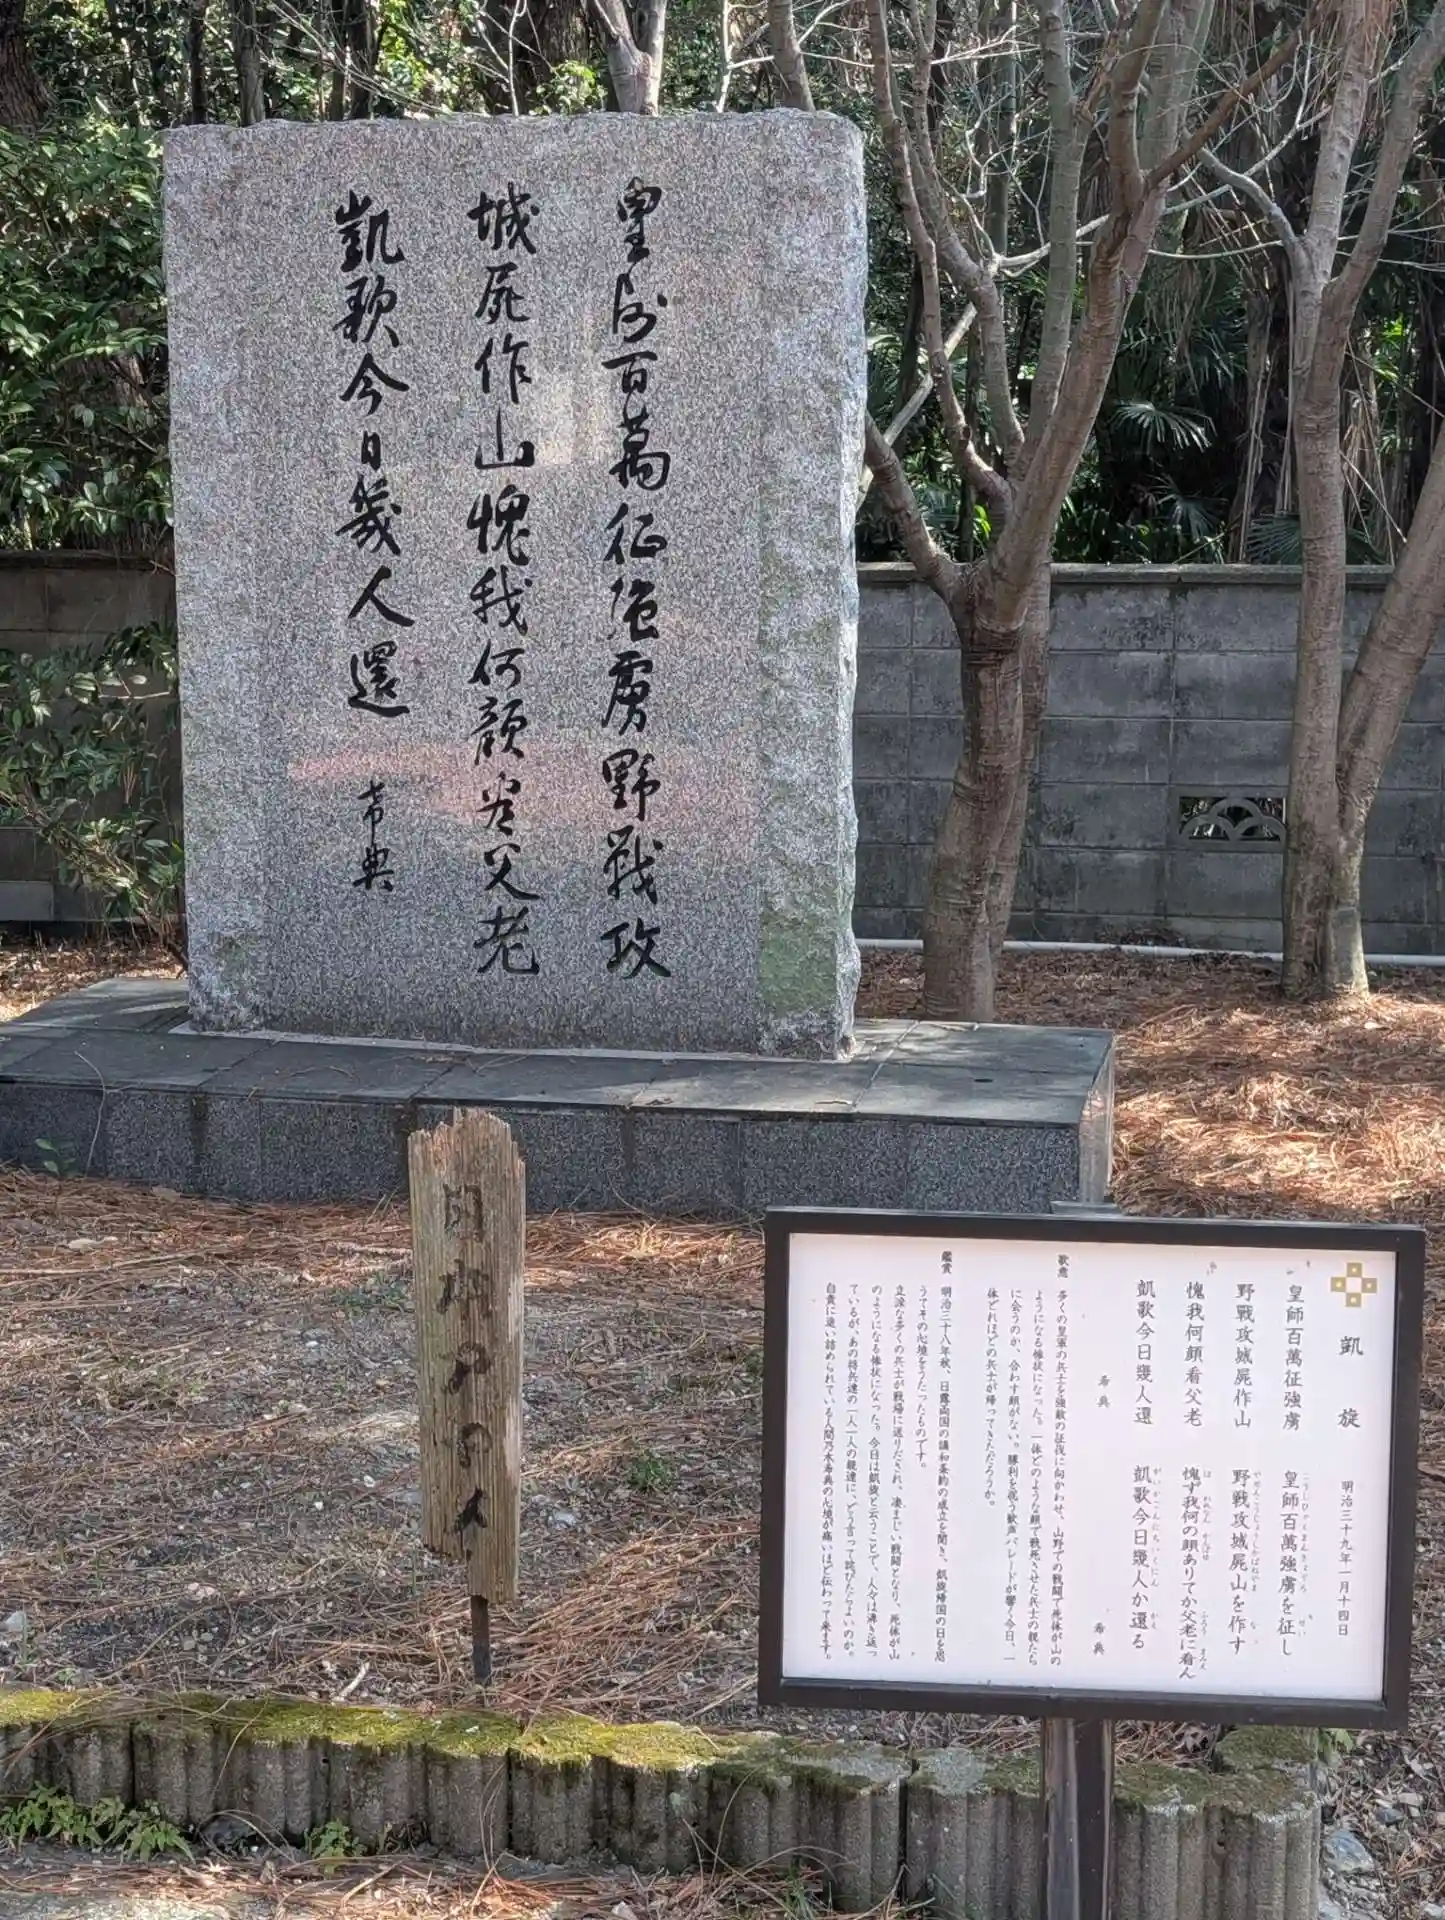 皇師百萬征強虜野戰攻
城屍作山愧我何顔看父老
凱歌今日幾人還
希典
凱旋
明治三十九年一月十四日
皇師百萬征強虜
皇師百萬強虜を征し
野戰攻城屍作山
野戦攻城屍山を作す
愧我何顔看父老
愧ず我何の顔ありてか父老に看ん
凱歌今日幾人還
凱歌今日幾人か還る
希典
希典
歌意 多くの皇軍の兵士を強敵の征伐に向かわせ、山野での戦闘で死体が山の
ようになる惨状になった。一体どのような顔で戦死させた兵士の親たち
に会うのか、合わす顔がない。勝利を祝う歓声パレードが響く今日、一
体どれほどの兵士が帰ってきただろうか。
鑑賞 明治三十八年秋、日露両国の講和条約の成立を聞き、凱旋帰国の日を思
うてその心境をうたったものです。
立派な多くの兵士が戦場に送りだされ、凄まじい戦闘となり、死体が山
のようになる惨状になった。今日は凱旋と云うことで、人々は沸き返っ
ているが、あの将兵達の一人一人の親達に、どう言って詫びたらよいのか。
自責に追い詰められている人間乃木希典の心境が痛いほど伝わって来ます。